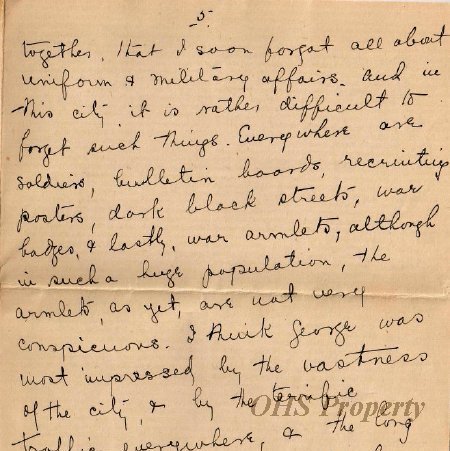 5
together, that I soon forgot all about
uniform & military affairs. And in
this city it is rather difficult to
forget such things. Everywhere are
soldiers, bulletin boards, recruiting
posters, dark black streets, war
badges, & lastly, war armlets, although
in such a huge population, the
armlets, as yet, are not very
conspicuous. I think George was
most impressed by the vastness
of the city, & by the terrific
OHS Property
traffic everywhere, & the long